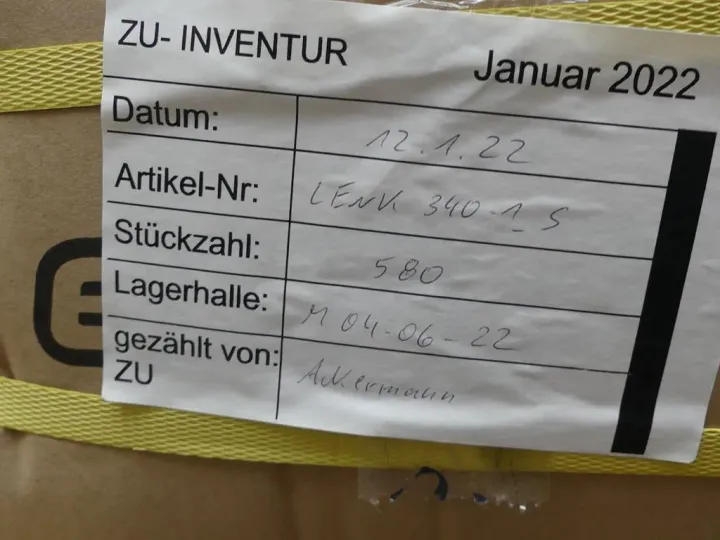 ZU- INVENTUR Januar 2022
Datum: 12.1.22
Artikel-Nr: LENK 340-1_S
Stückzahl: 580
Lagerhalle: M 04-06-22
gezählt von: Ackermann
ZU